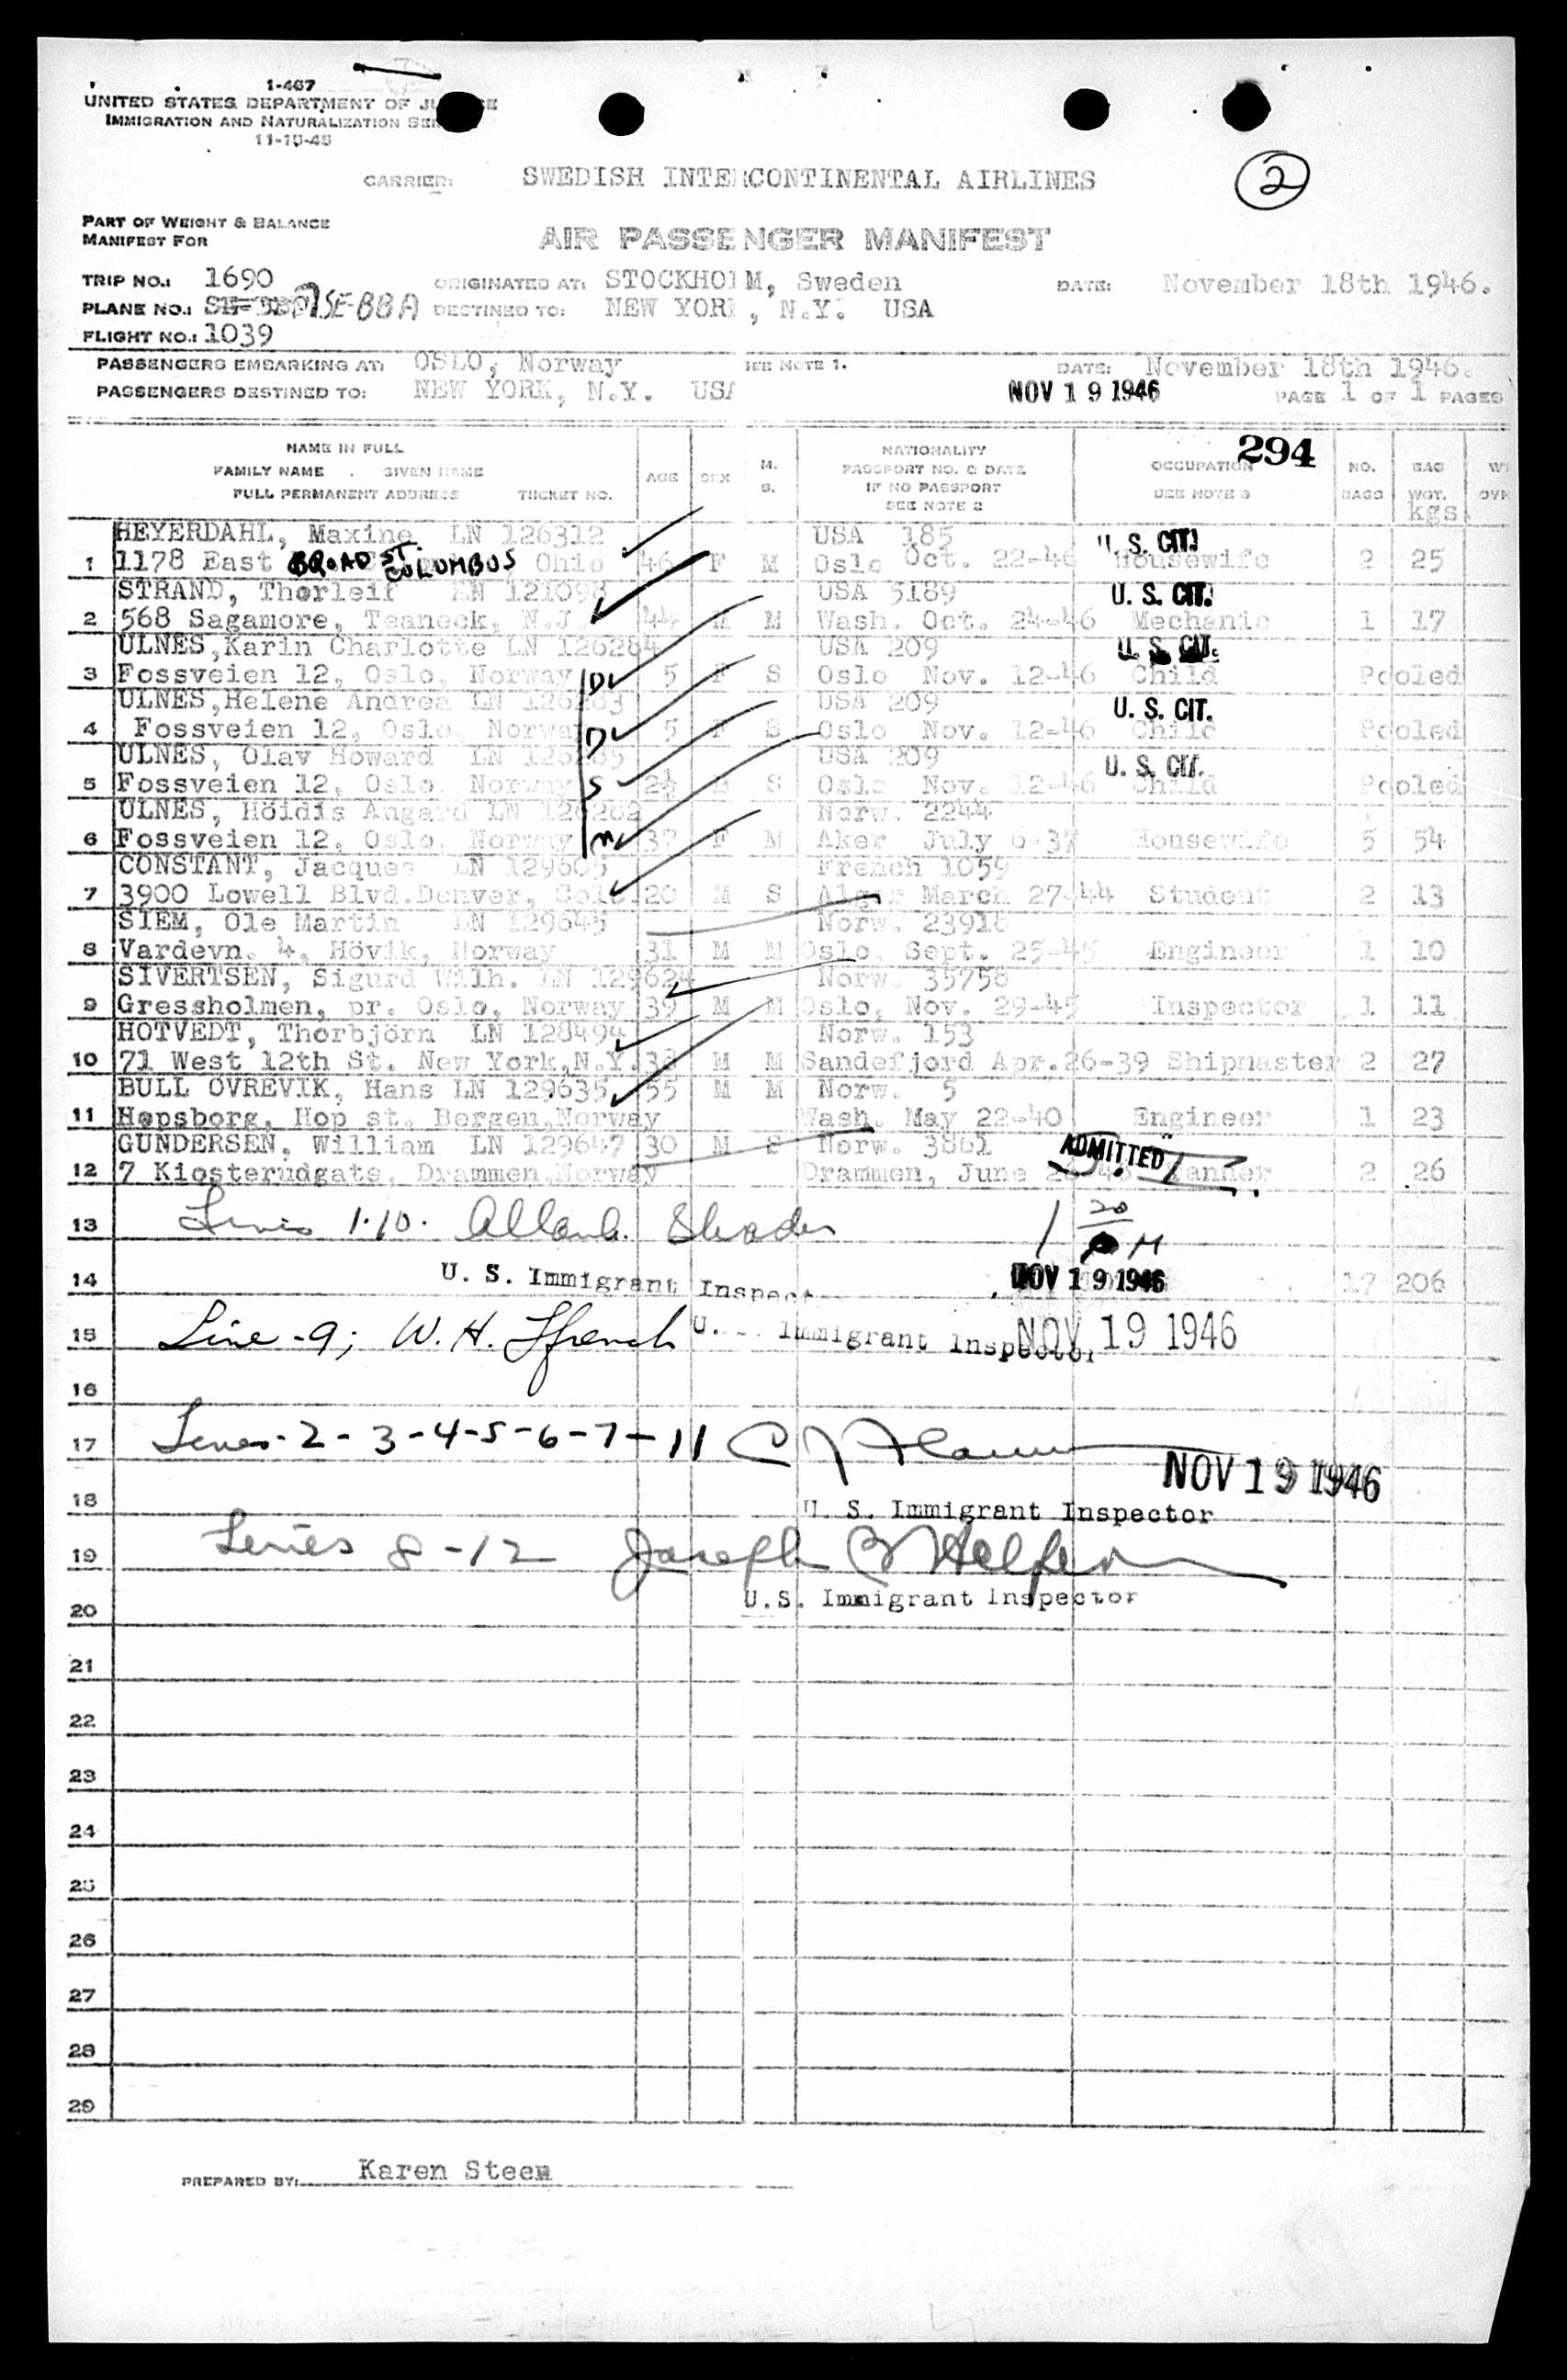 1-467
UNITED STATES DEPARTMENT OF JU CE
IMMIGRATION AND NATURALIZATION SER
11-15-45
CARRIER: SWEDISH INTERCONTINENTAL AIRLINES
2
PART OF WEIGHT & BALANCE
MANIFEST FOR
AIR PASSENGER MANIFEST
TRIP NO.: 1690 ORIGINATED AT: STOCKHOLM, Sweden DATE: November 18th 1946.
PLANE NO.: SE-BBA DESTINED TO: NEW YORK, N.Y. USA
FLIGHT NO.: 1039
PASSENGERS EMBARKING AT: OSLO, Norway SEE NOTE 1. DATE: November 18th 1946.
PASSENGERS DESTINED TO: NEW YORK, N.Y. USA NOV 19 1946 PAGE 1 OF 1 PAGES
294
NAME IN FULL
FAMILY NAME . GIVEN NAME
FULL PERMANENT ADDRESS TICKET NO. AGE SEX M. S. NATIONALITY PASSPORT NO. & DATE IF NO PASSPORT SEE NOTE 2 OCCUPATION SEE NOTE 3 NO. BAGS BAG WGT. kgs.
HEYERDAHL, Maxine LN 126312 USA 185 U. S. CIT.
1 1178 East BROAD ST. COLUMBUS Ohio 46 F M Oslo Oct. 22-46 Housewife 2 25
STRAND, Thorleif LN 121098 USA 5189 U. S. CIT.
2 568 Sagamore, Teaneck, N.J. 44 M M Wash. Oct. 24-46 Mechanic 1 17
ULNES,Karin Charlotte LN 126284 USA 209 U. S. CIT.
3 Fossveien 12, Oslo, Norway D 5 F S Oslo Nov. 12-46 Child Pooled
ULNES,Helene Andrea LN 126283 USA 209 U. S. CIT.
4 Fossveien 12, Oslo, Norway D 5 F S Oslo Nov. 12-46 Child Pooled
ULNES, Olav Howard LN 126285 USA 209 U. S. CIT.
5 Fossveien 12, Oslo, Norway S 2½ M S Oslo Nov. 12-46 Child Pooled
ULNES, Höidis Angard LN 126282 Norw. 2244
6 Fossveien 12, Oslo, Norway M 37 F M Aker July 6-37 Housewife 5 54
CONSTANT, Jacques LN 129605 French 1059
7 3900 Lowell Blvd.Denver, Colo. 20 M S Alger March 27-44 Student 2 13
SIEM, Ole Martin LN 129645 Norw. 23918
8 Vardevn. 4, Hövik, Norway 31 M M Oslo, Sept. 25-45 Engineer 1 10
SIVERTSEN, Sigurd Wilh. LN 129624 Norw. 35758
9 Gressholmen, pr. Oslo, Norway 39 M M Oslo, Nov. 29-45 Inspector 1 11
HOTVEDT, Thorbjörn LN 128494 Norw. 153
10 71 West 12th St. New York,N.Y. 38 M M Sandefjord Apr.26-39 Shipmaster 2 27
BULL OVREVIK, Hans LN 129635 55 M M Norw. 5
11 Hopsborg, Hop st. Bergen,Norway Wash. May 22-40 Engineer 1 23
GUNDERSEN, William LN 129647 30 M S Norw. 3861 ADMITTED
12 7 Klosterudgate, Drammen,Norway Drammen, June Tanner 2 26
13 Lines 1.10.
14 U. S. Immigrant Inspect NOV 19 1946 17 206
15 Line -9; W. H. Ffrench U. Immigrant Inspector NOV 19 1946
16
17 Lines-2-3-4-5-6-7-11 NOV 19 1946
18 U. S. Immigrant Inspector
19 Lines 8-12 Joseph B Helfer
U.S. Immigrant Inspector
20
21
22
23
24
25
26
27
28
29
PREPARED BY: Karen Steen